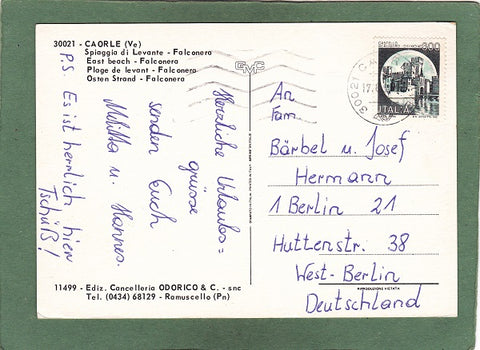 30021 - CAORLE (Ve)
Spiaggia di Levante - Falconera
East beach - Falconera
Plage de levant - Falconera
Osten Strand - Falconera
GMC
Herzliche Urlaubs=
grüsse
senden Euch
Militta u. Hannes.
P.S. Es ist herrlich hier
Tschüß!
An
Fam.
Bärbel u. Josef
Hermann
1 Berlin 21
Huttenstr. 38
West-Berlin
Deutschland
30021 CA
17.
600
ITALIA
11499 - Ediz. Cancelleria ODORICO & C. - snc
Tel. (0434) 68129 - Ramuscello (Pn)
RIPRODUZIONE VIETATA